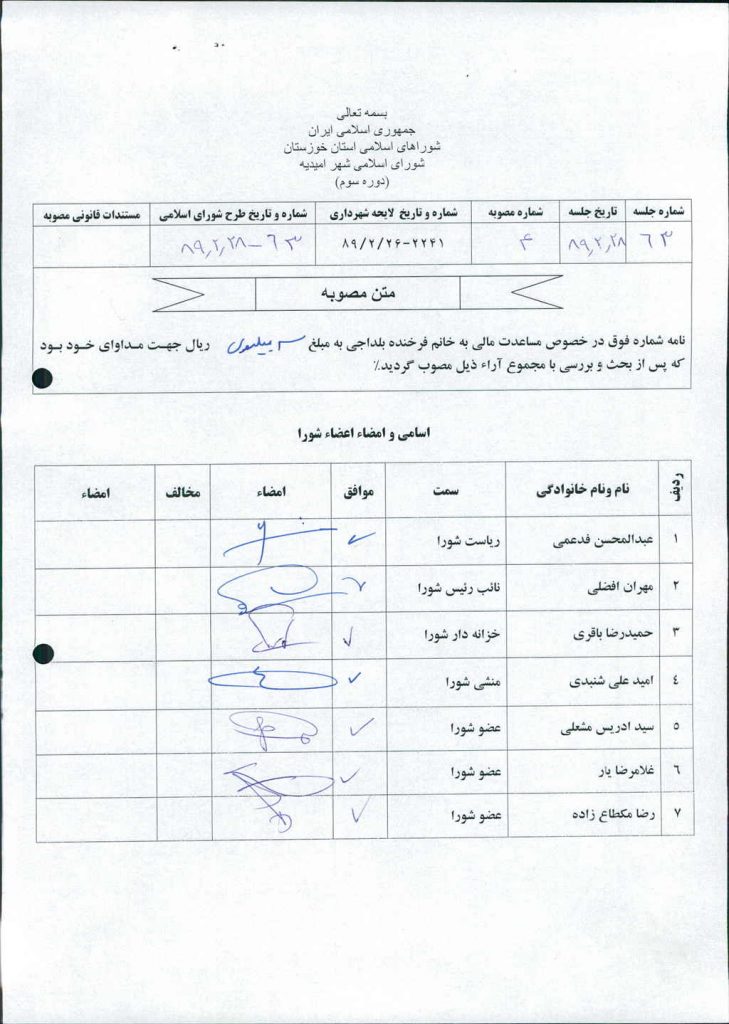 بسمه تعالی
جمهوری اسلامی ایران
شوراهای اسلامی استان خوزستان
شورای اسلامی شهر امیدیه
(دوره سوم)
شماره جلسه تاریخ جلسه شماره مصوبه شماره و تاریخ لایحه شهرداری شماره و تاریخ طرح شورای اسلامی مستندات قانونی مصوبه
۶۳ ۸۹٫۲٫۲۸ ۴ ۸۹/۲/۲۶-۲۲۴۱ ۸۹٫۲٫۲۸-۶۳
متن مصوبه
نامه شماره فوق در خصوص مساعدت مالی به خانم فرخنده بلداجی به مبلغ ۳ میلیون ریال جهت مداوای خود بود
که پس از بحث و بررسی با مجموع آراء ذیل مصوب گردید.٪
اسامی و امضاء اعضاء شورا
ردیف نام ونام خانوادگی سمت موافق امضاء مخالف امضاء
۱ عبدالمحسن فدعمی ریاست شورا ✓
۲ مهران افضلی نائب رئیس شورا ✓
۳ حمیدرضا باقری خزانه دار شورا ✓
٤ امید علی شنبدی منشی شورا ✓
۵ سید ادریس مشعلی عضو شورا ✓
٦ غلامرضا یار عضو شورا ✓
۷ رضا مکطاع زاده عضو شورا ✓